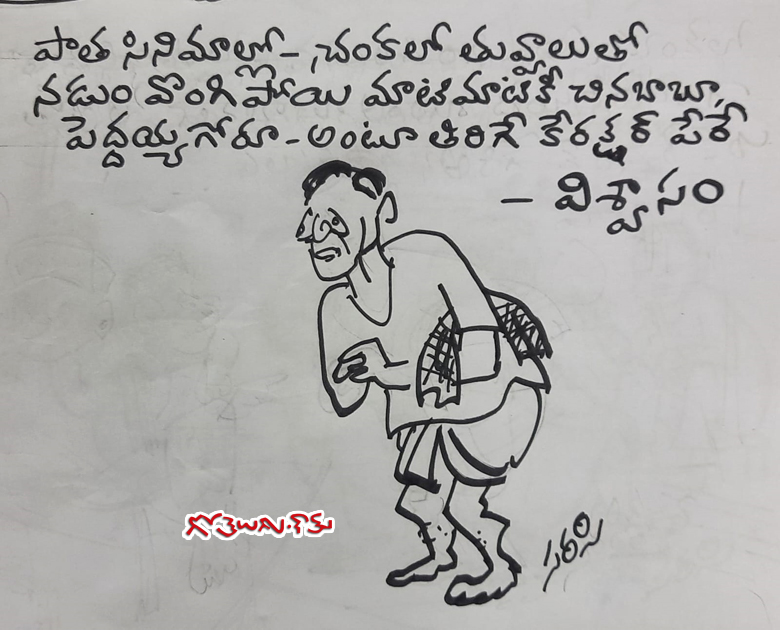 పాత సినిమాల్లో- చంకలో తువ్వాలుతో
నడుం వొంగిపోయి మాటిమాటికీ చినబాబూ,
పెద్దయ్యగోరూ- అంటూ తిరిగే కేరక్టర్ పేరే
- విశ్వాసం
గోతెలుగు.కామ్
సరసి